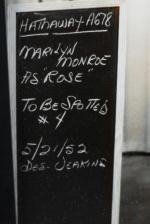 HATHAWAY-A678
MARILYN
MONROE
AS "ROSE"
TO BE SPOTTED
# 4
5/21/52
DES-JEAKINS